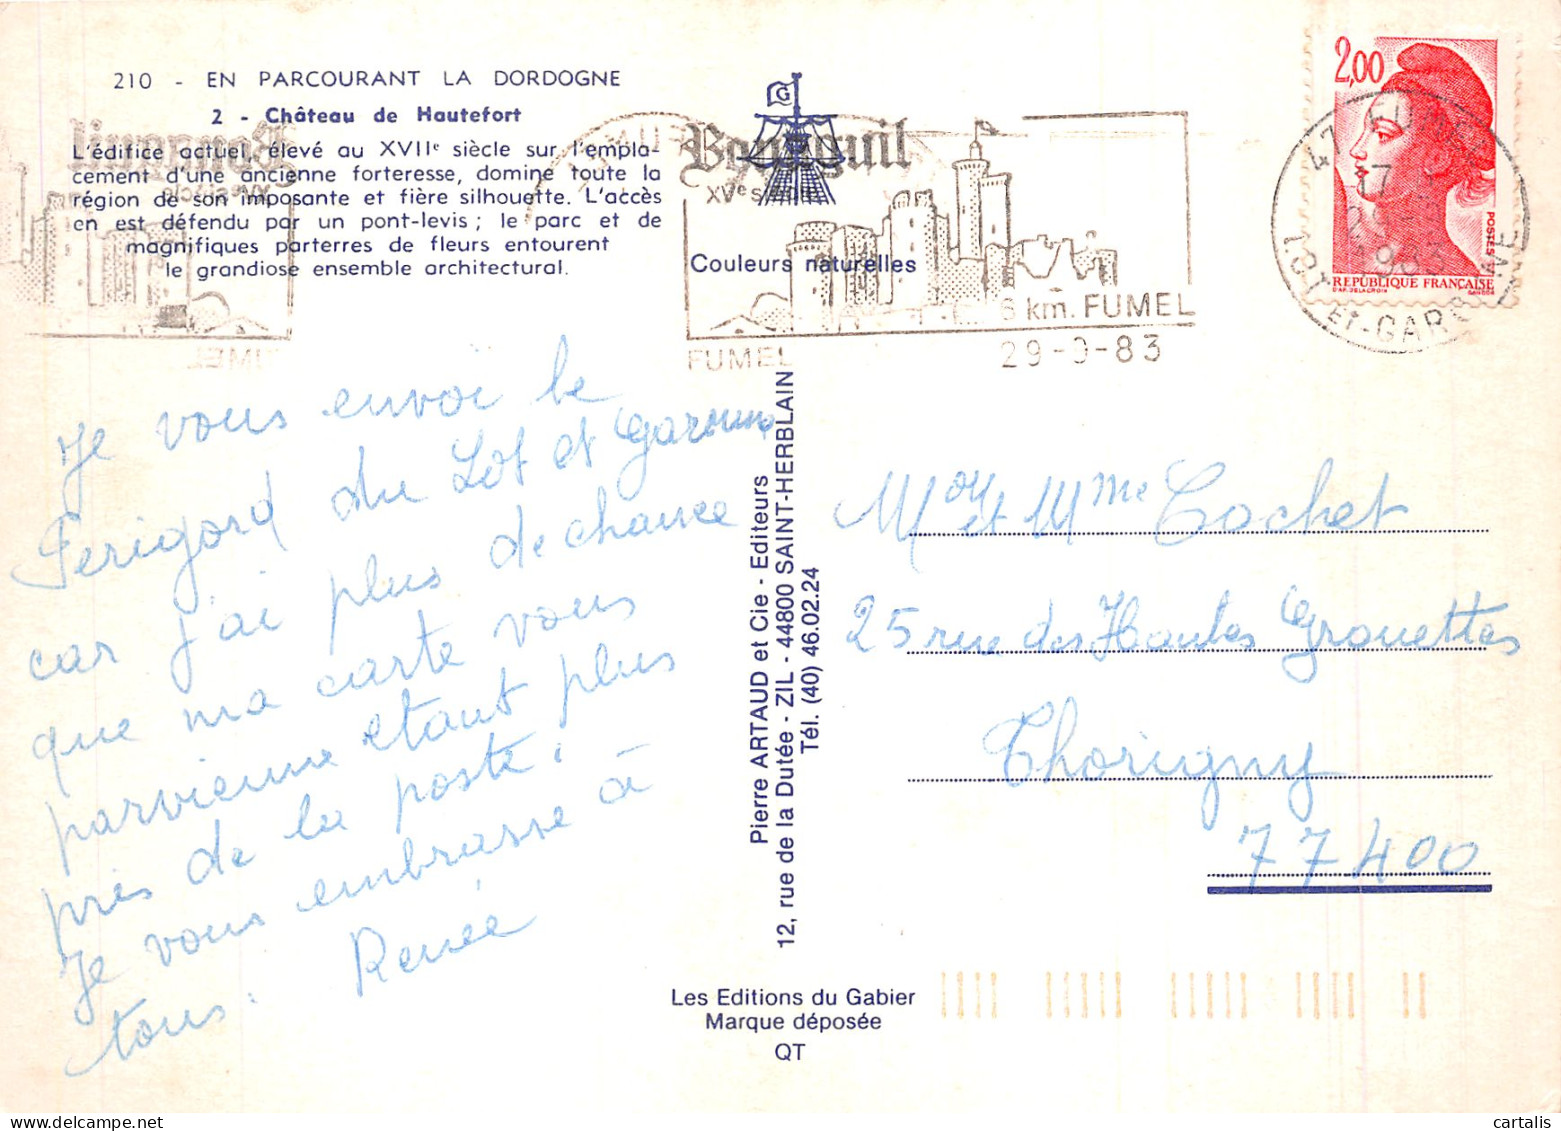 210 - EN PARCOURANT LA DORDOGNE
2 - Château de Hautefort
L'édifice actuel, élevé au XVIIe siècle sur l'empla-
cement d'une ancienne forteresse, domine toute la
région de son imposante et fière silhouette. L'accès
en est défendu par un pont-levis ; le parc et de
magnifiques parterres de fleurs entourent
le grandiose ensemble architectural.
G
Bonaguil
XVe siècle
Couleurs naturelles
6 km. FUMEL
FUMEL
29-9-83
2,00
POSTES
RÉPUBLIQUE FRANÇAISE
D'AP. DELACROIX GANDON
47 FUMEL
17 H
29-9
1983
LOT ET-GARONNE
Je vous envoi le
Perigord du Lot et Garonne
car j'ai plus de chance
que ma carte vous
parvienne etant plus
près de la poste.
Je vous embrasse à
tous. Renée
Pierre ARTAUD et Cie - Editeurs
12, rue de la Dutée - ZIL - 44800 SAINT-HERBLAIN
Tél. (40) 46.02.24
Mr et Mme Cochet
25 rue des Hautes Grouettes
Thorigny
77400
Les Editions du Gabier
Marque déposée
QT
cartalis